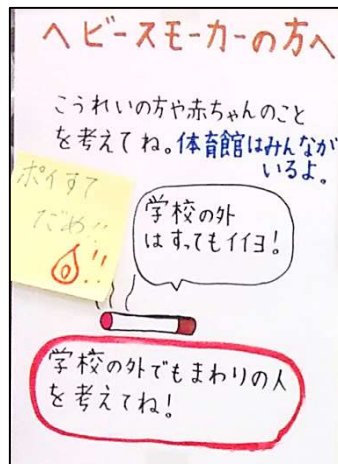 ヘビースモーカーの方へ
こうれいの方や赤ちゃんのこと
を考えてね。体育館はみんなが
いるよ。
ポイすて
だめ!!
学校の外
はすってもイイヨ!
学校の外でもまわりの人
を考えてね!